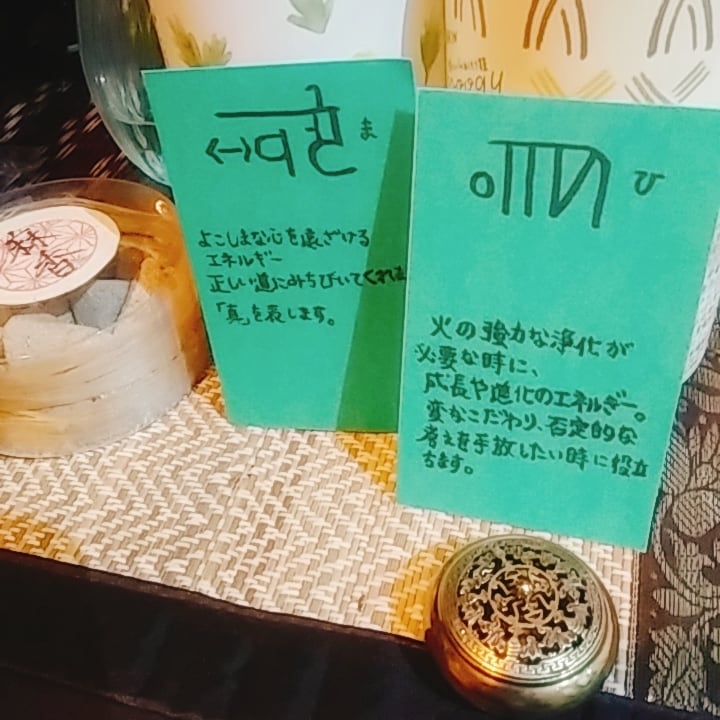 ま
よこしまな心を遠ざける
エネルギー
正しい道にみちびいてくれま
「真」を表します。
ひ
火の強力な浄化が
必要な時に、
成長や進化のエネルギー。
変なこだわり、否定的な
考えを手放したい時に役立
ちます。